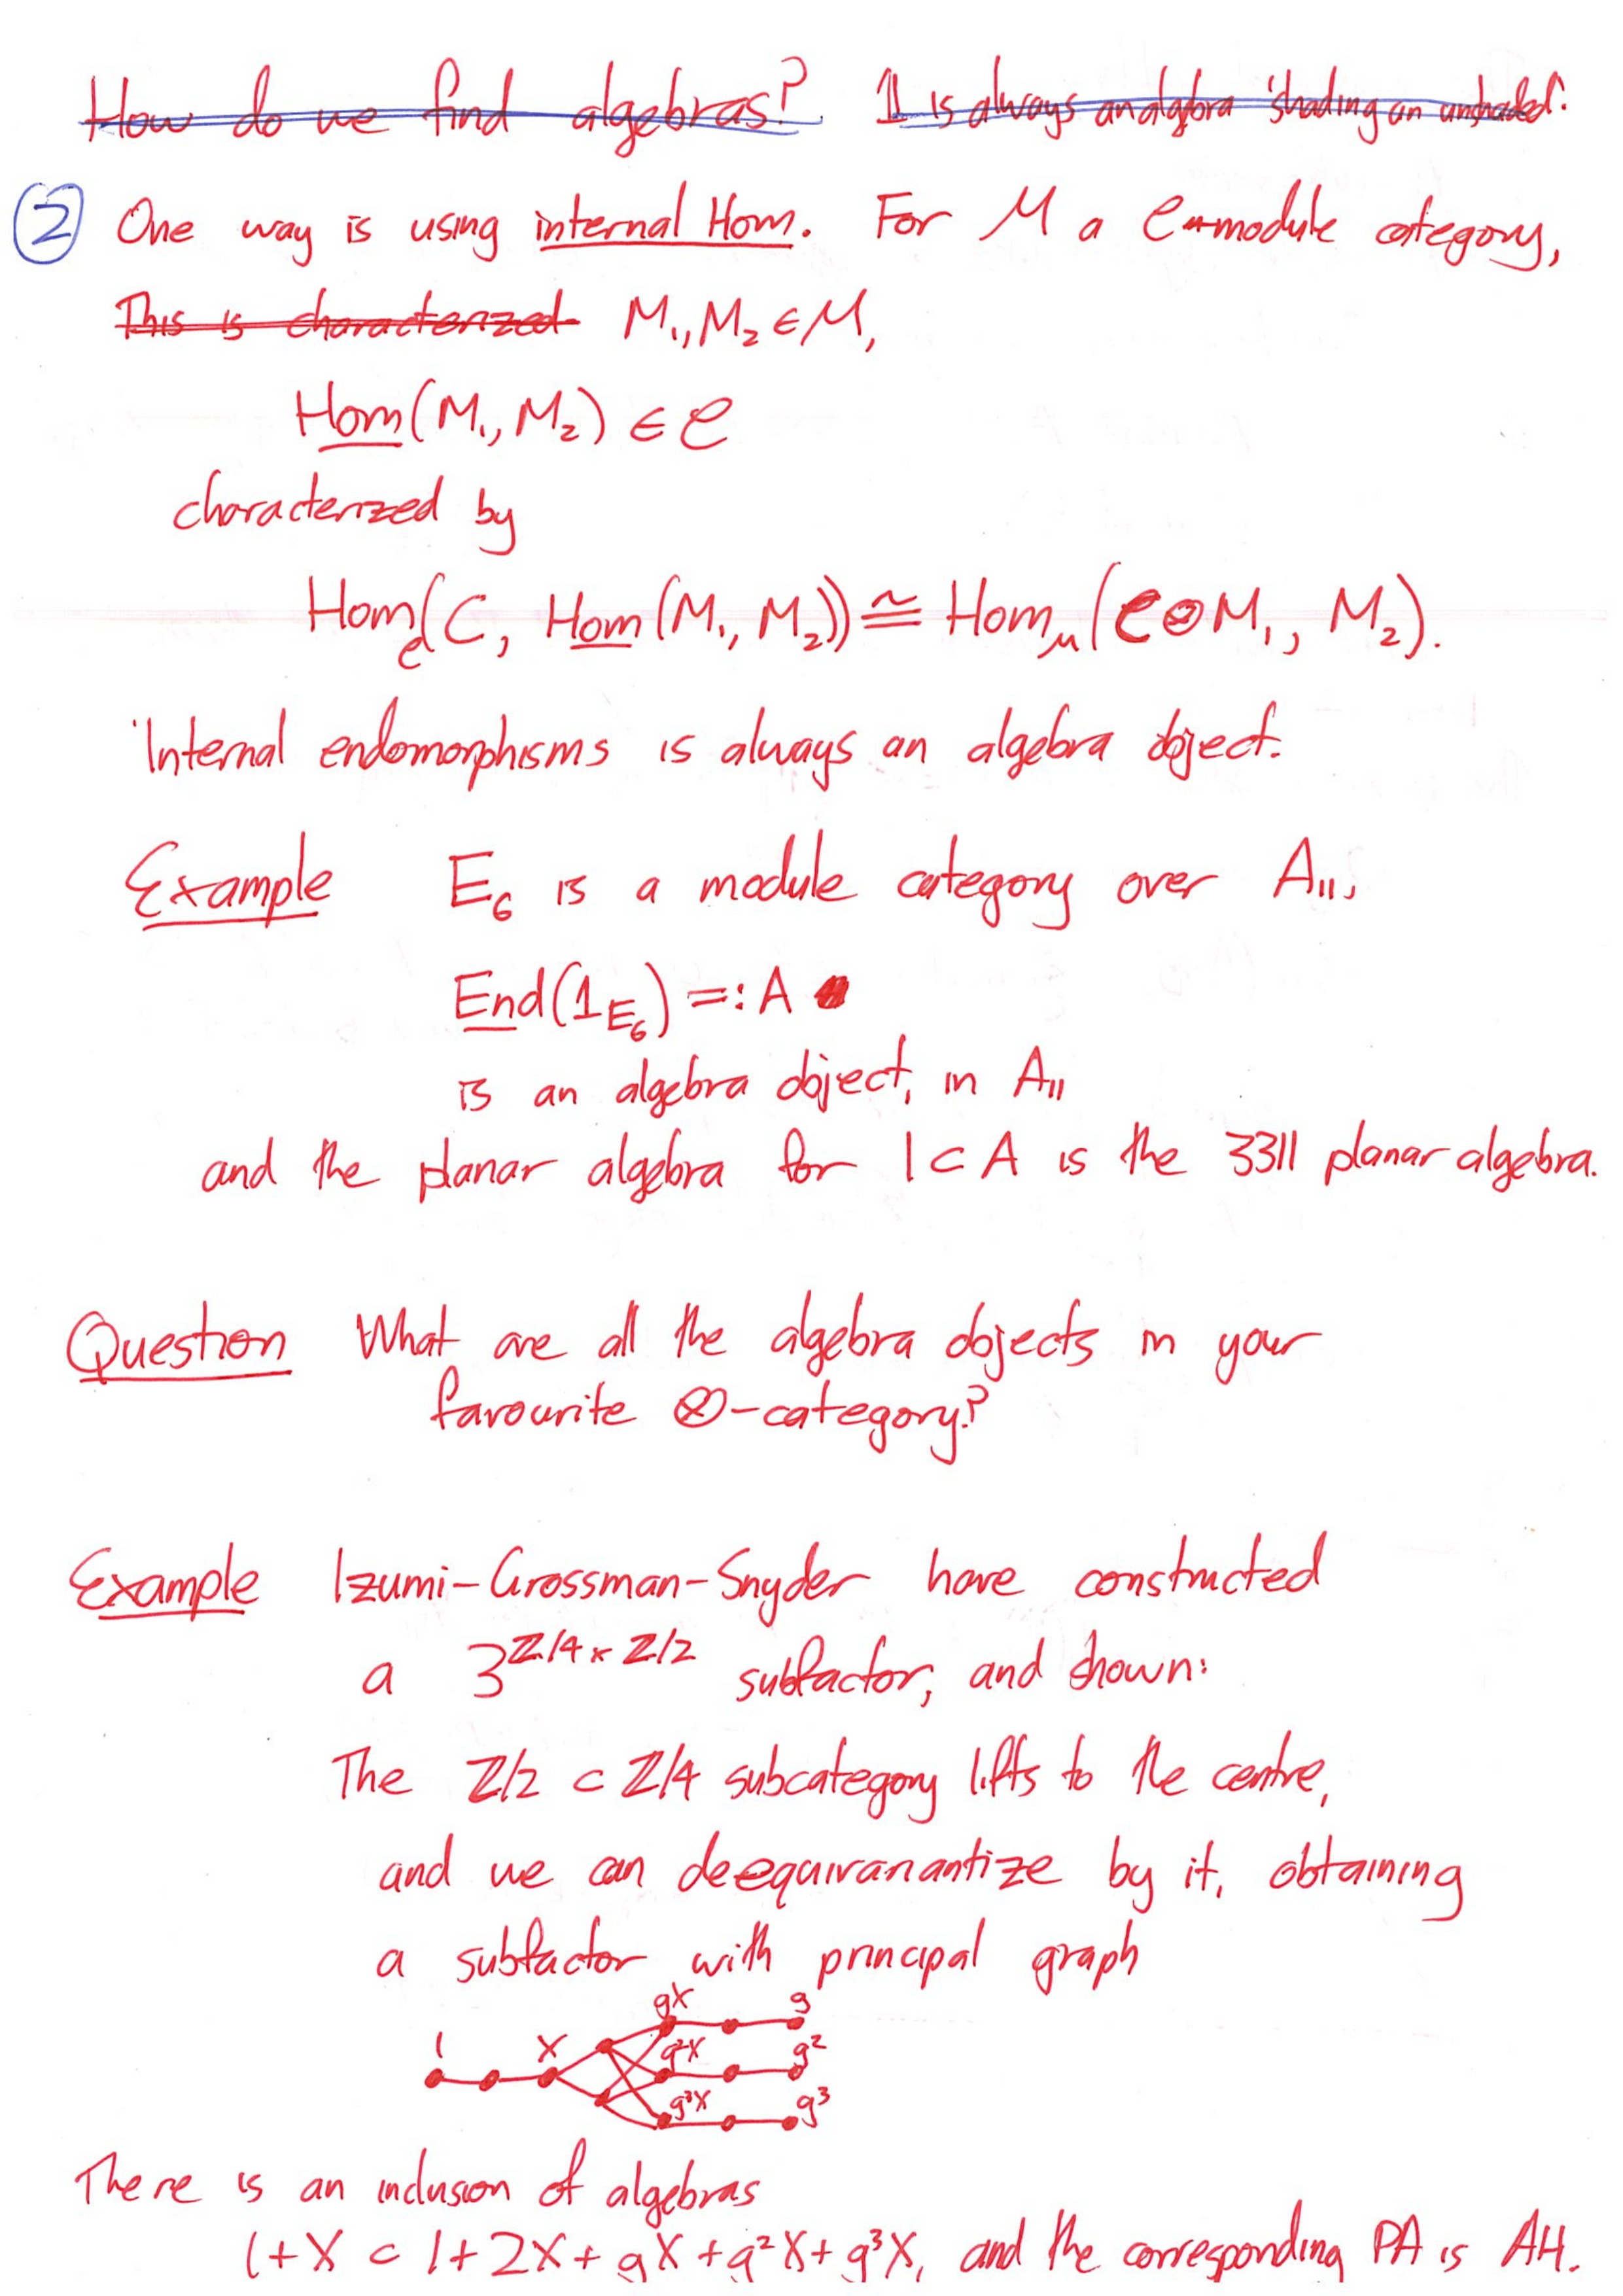 How do we find algebras? 1 is always an algebra 'shading an unshaded'.
② One way is using internal Hom. For M a C-module category,
This is characterized M₁, M₂ ∈ M,
Hom(M₁, M₂) ∈ C
characterized by
Hom_C(C, Hom(M₁, M₂)) ≅ Hom_M(C⊗M₁, M₂).
Internal endomorphisms is always an algebra object.
Example E₆ is a module category over A₁₁,
End(1_E₆) =: A
is an algebra object, in A₁₁
and the planar algebra for 1 ⊂ A is the 3311 planar algebra.
Question What are all the algebra objects in your
favourite ⊗-category?
Example Izumi-Grossman-Snyder have constructed
a 3^Z/4 × Z/2 subfactor, and shown:
The Z/2 ⊂ Z/4 subcategory lifts to the centre,
and we can deequivariantize by it, obtaining
a subfactor with principal graph
gX g
1 X g²X g²
g³X g³
There is an inclusion of algebras
1+X ⊂ 1+2X+gX+g²X+g³X, and the corresponding PA is AH.